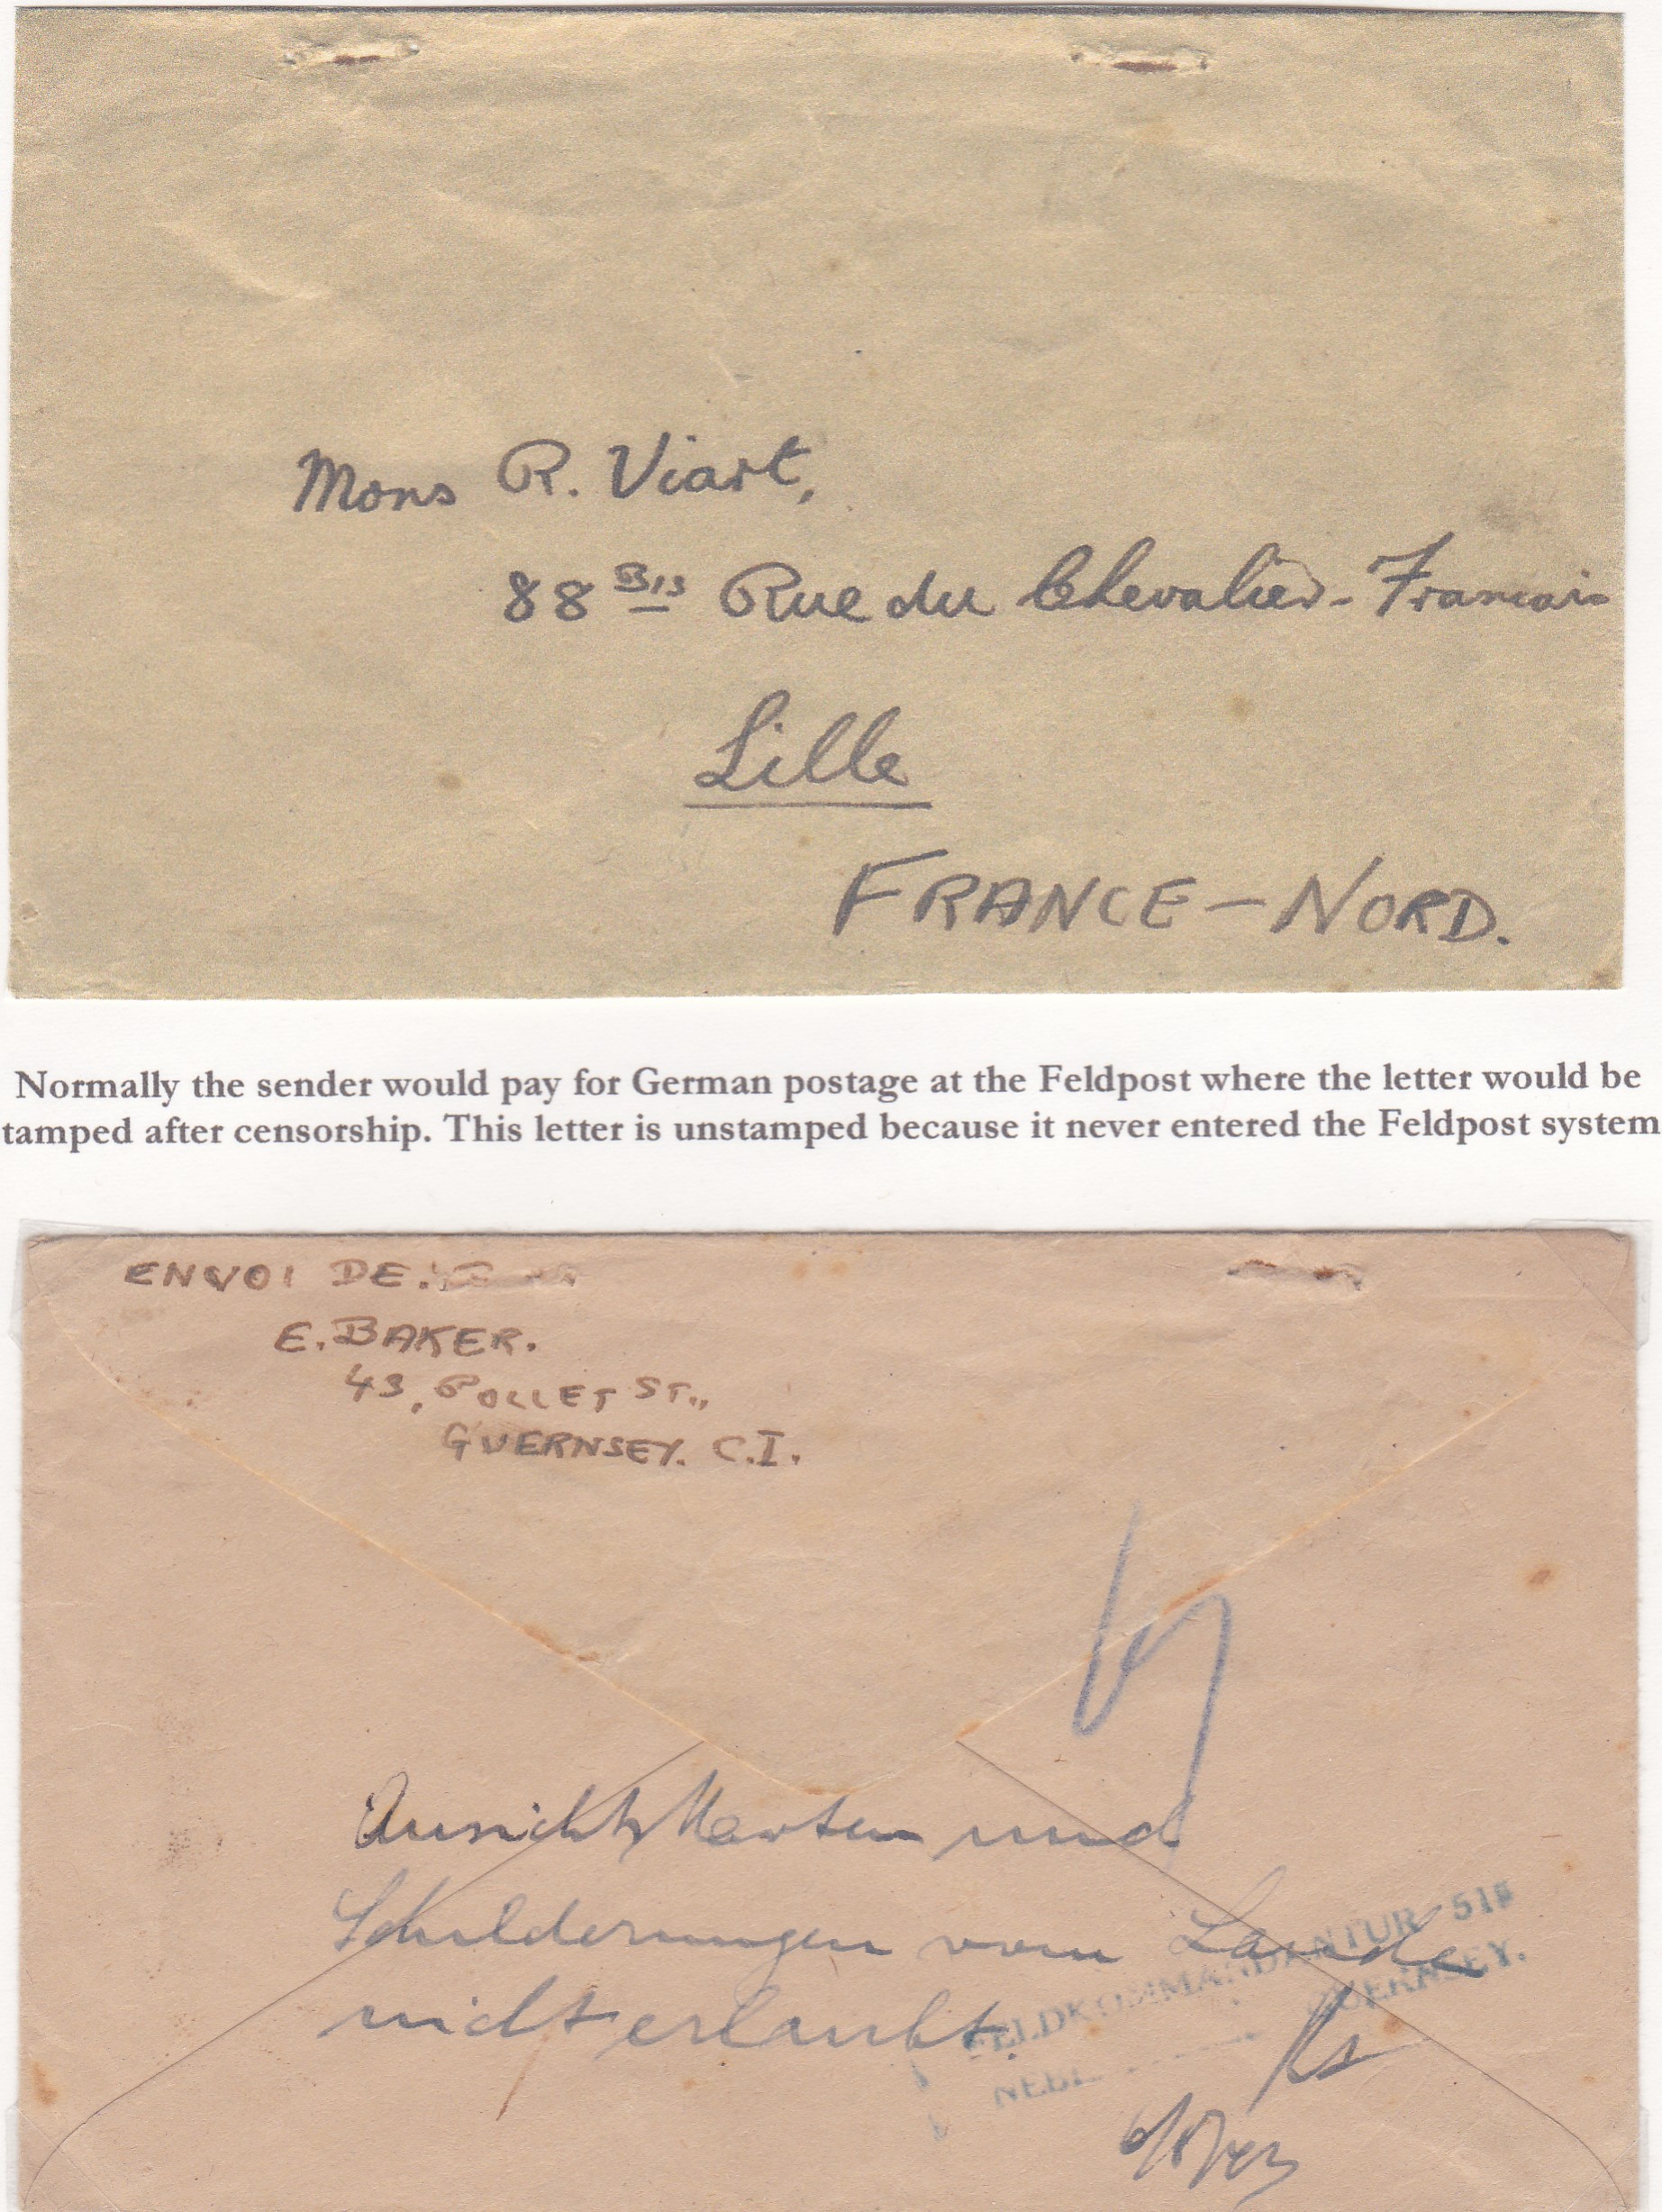 Mons R. Viart,
88 Bis Rue du Chevalier-Francais
Lille
FRANCE-NORD.
Normally the sender would pay for German postage at the Feldpost where the letter would be
tamped after censorship. This letter is unstamped because it never entered the Feldpost system
ENVOI DE:
E. BAKER.
43, POLLET ST.,
GUERNSEY. C.I.
Ansichtskarten und
Schilderungen vom Lande
nicht erlaubt.
FELDKOMMANDANTUR 515
GUERNSEY.